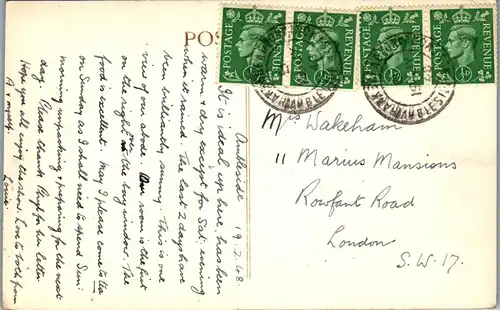 POS
POSTAGE REVENUE
POSTAGE REVENUE
POSTAGE REVENUE
POSTAGE REVENUE
AMBLESIDE
Ambleside 19.7.48
It is ideal up here, has been
warm & dry except for Sat. evening
when it rained. The last 2 days have
been brilliantly sunny. This is one
view of our abode. Our room is the first
on the right over the bay window. The
food is excellent. May I please come to tea
on Sunday as I shall need to spend Sun:
morning unpacking & preparing for the next
day. Please thank for her letter
Hope you all enjoy the show. Love to both from
& yourself. Louie
Mrs Wakeham
11 Marius Mansions
Rowfant Road
London
S.W.17.